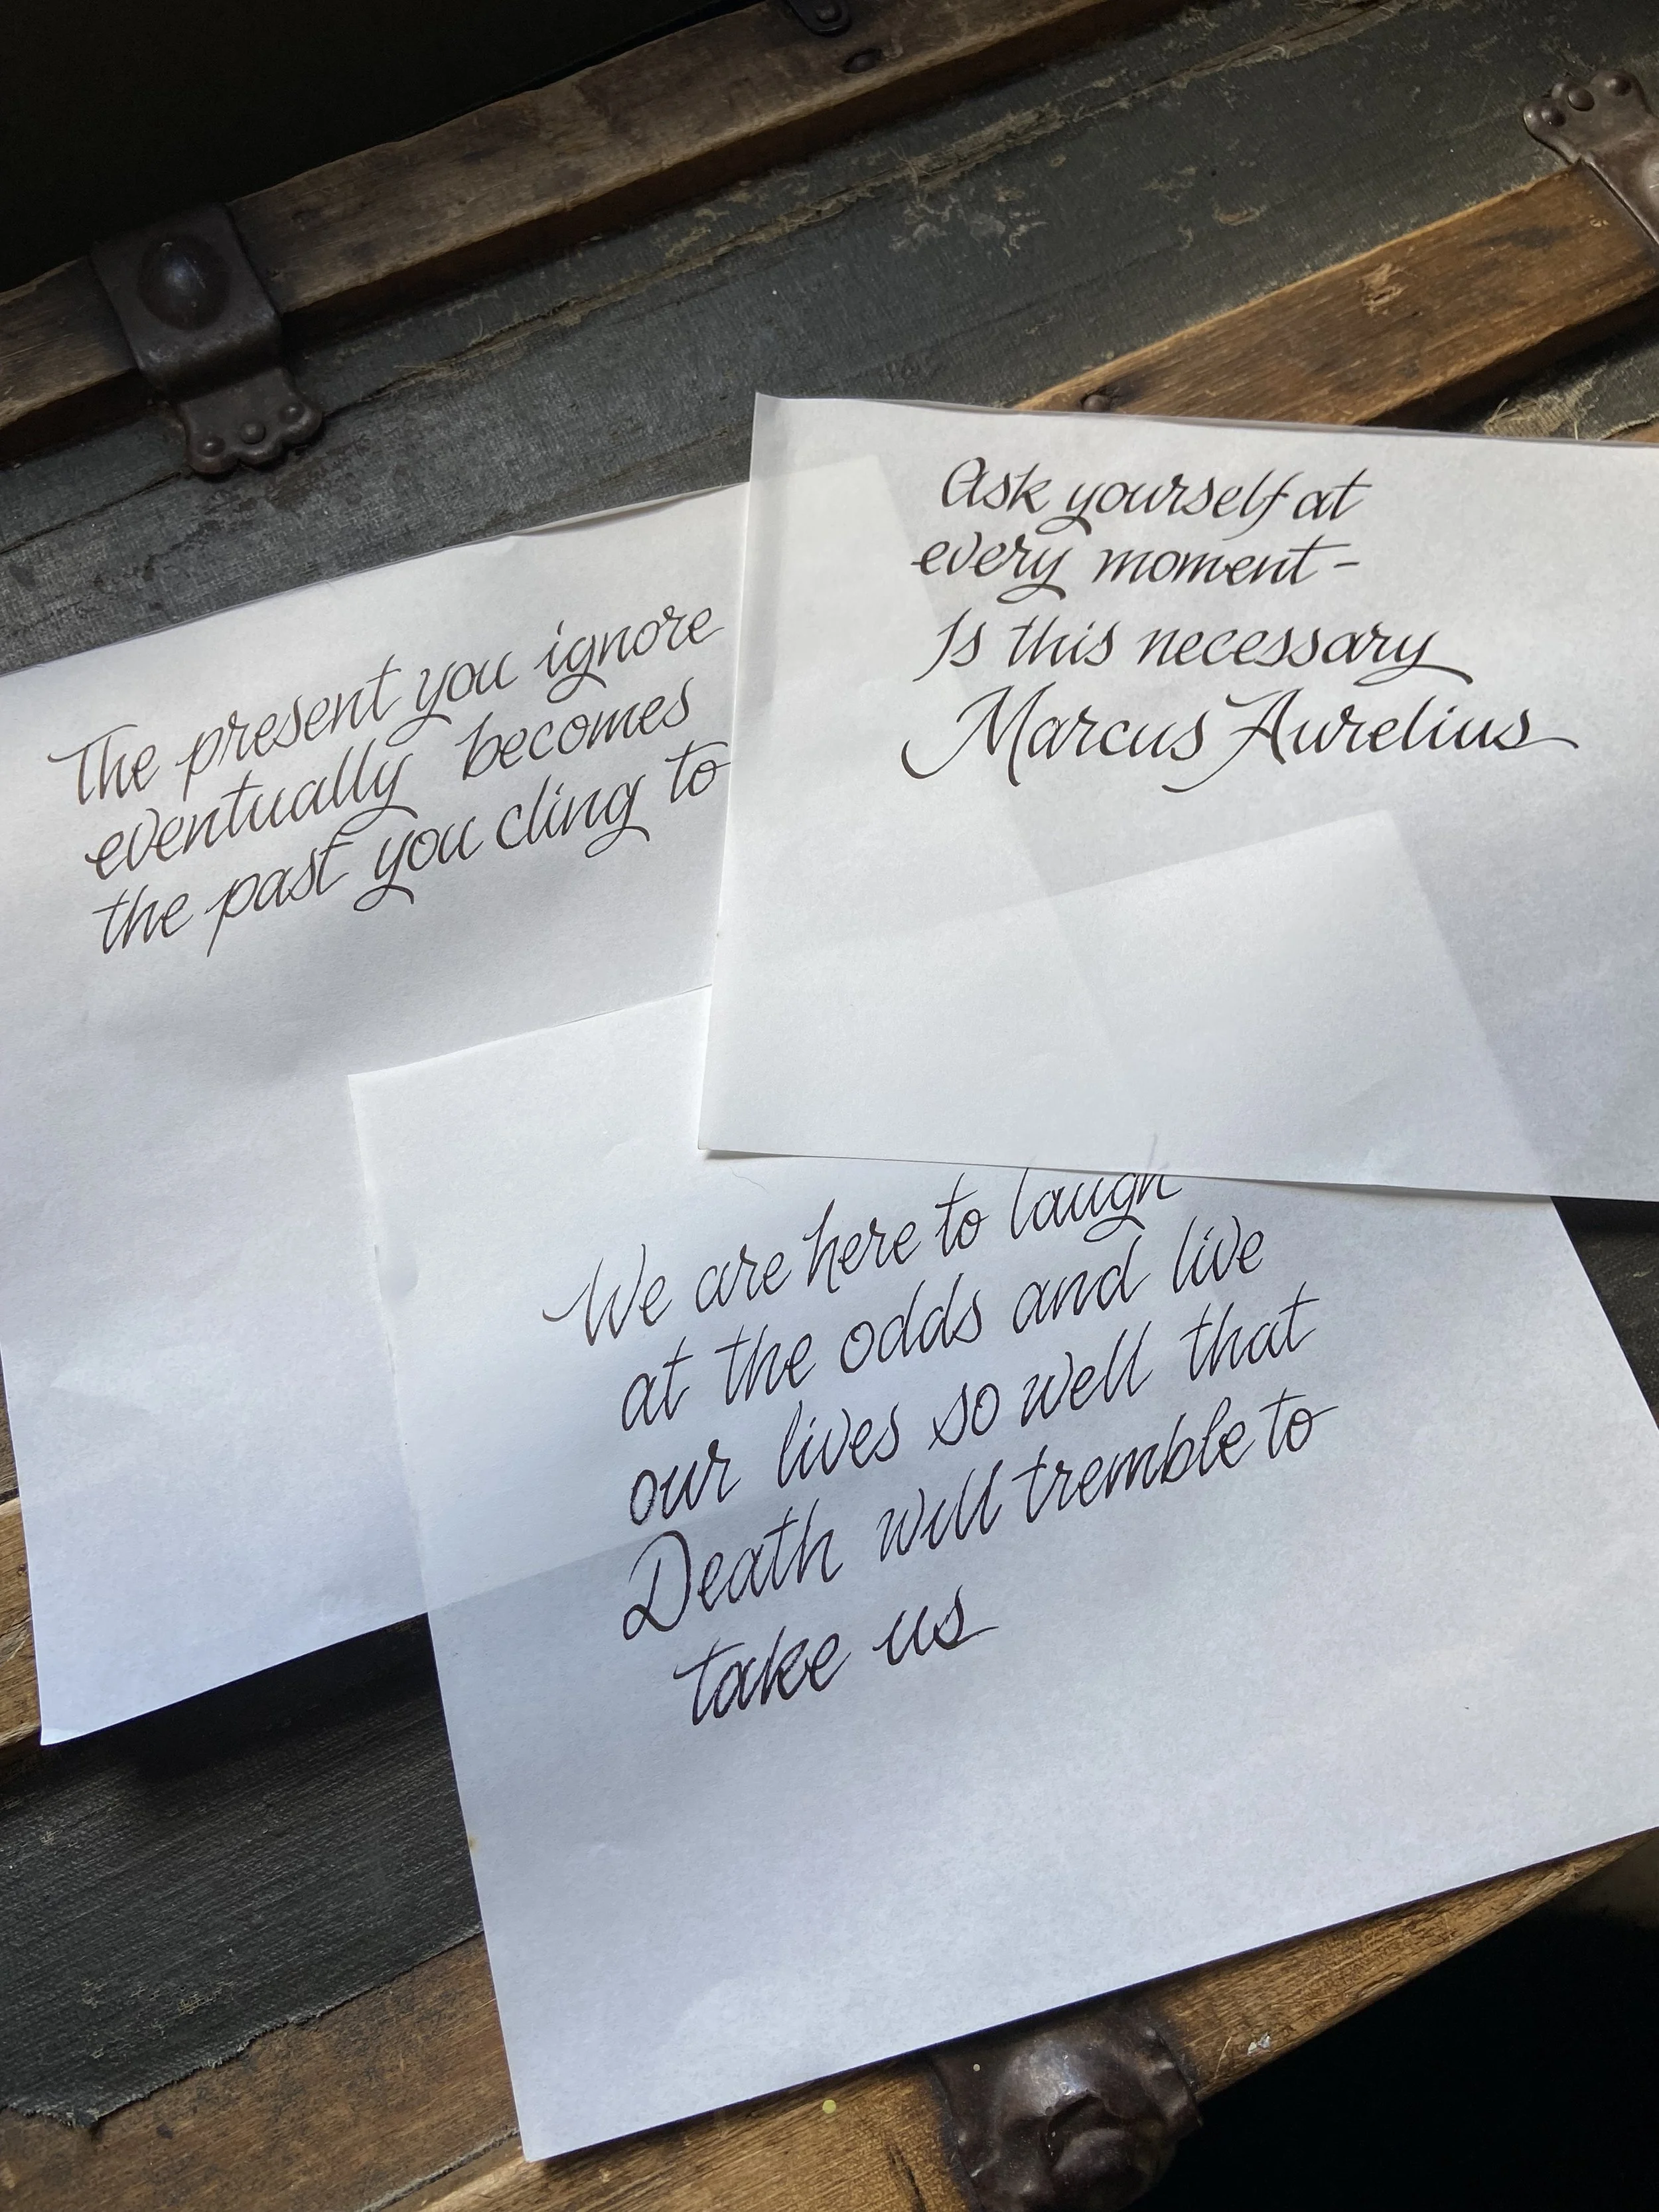 The present you ignore
eventually becomes
the past you cling to
Ask yourself at
every moment –
Is this necessary
Marcus Aurelius
We are here to laugh
at the odds and live
our lives so well that
Death will tremble to
take us